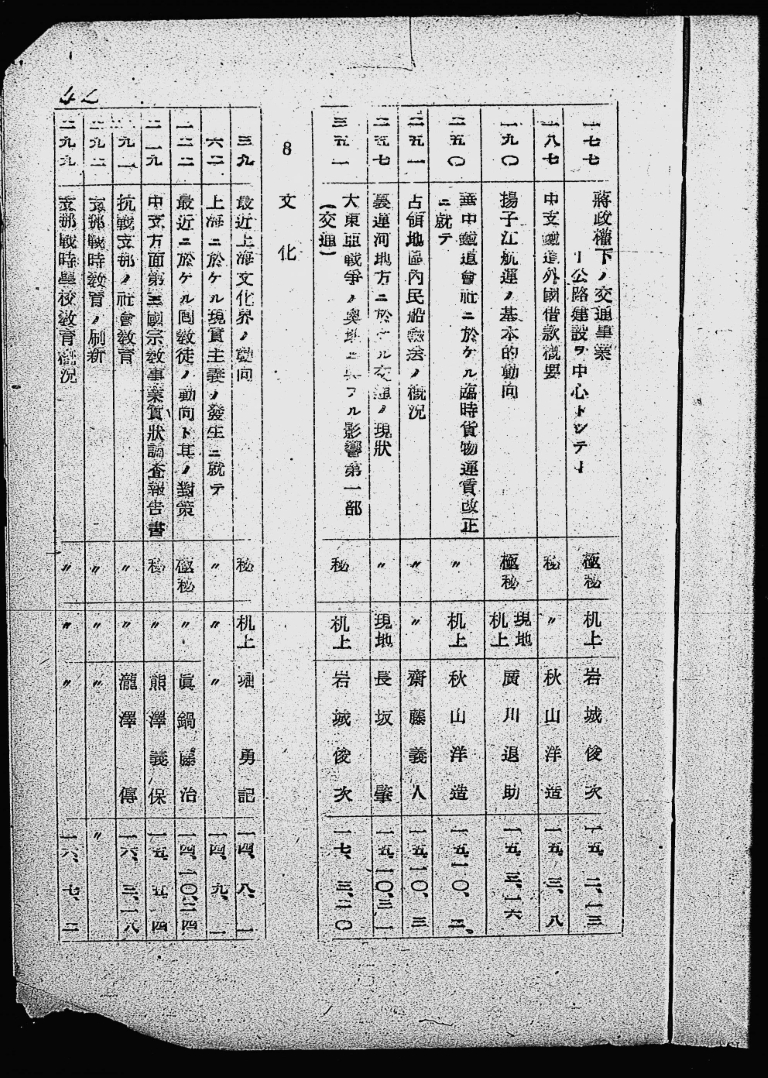 42
一七七 蔣政權下ノ交通事業
―公路建設ヲ中心トシテ― 極秘 机上 岩城俊次 一五、二、一三
一八七 中支鐵道外國借款概要 秘 〃 秋山洋造 一五、三、八
一九〇 揚子江航運ノ基本的動向 極秘 現地机上 廣川退助 一五、三、一六
二五〇 華中鐵道會社ニ於ケル臨時貨物運賃改正
ニ就テ 〃 机上 秋山洋造 一五、一〇、三
二五一 占領地區內民船輸送ノ概況 〃 〃 齋藤義人 一五、一〇、三
二五七 裏運河地方ニ於ケル交通ノ現狀 〃 現地 長坂肇 一五、一〇、三一
三五一 大東亞戰爭ノ奧地ニ與フル影響第一部
(交通) 秘 机上 岩城俊次 一七、三、二〇
8 文化
三九 最近上海文化界ノ動向 秘 机上 堀勇記 一四、八、一
六二 上海ニ於ケル現實主義ノ發生ニ就テ 〃 〃 〃 一四、九、一
一二二 最近ニ於ケル囘敎徒ノ動向ト其ノ對策 極秘 〃 眞鍋藤治 一四、一〇、二四
二一九 中支方面第三國宗敎事業實狀調査報吿書 秘 〃 熊澤義保 一五、五、一四
二九一 抗戰支那ノ社會敎育 〃 〃 瀧澤傳 一六、三、一八
二九二 支那戰時敎育ノ刷新 〃 〃 〃 〃
二九九 支那戰時學校敎育槪況 〃 〃 〃 一六、七、二